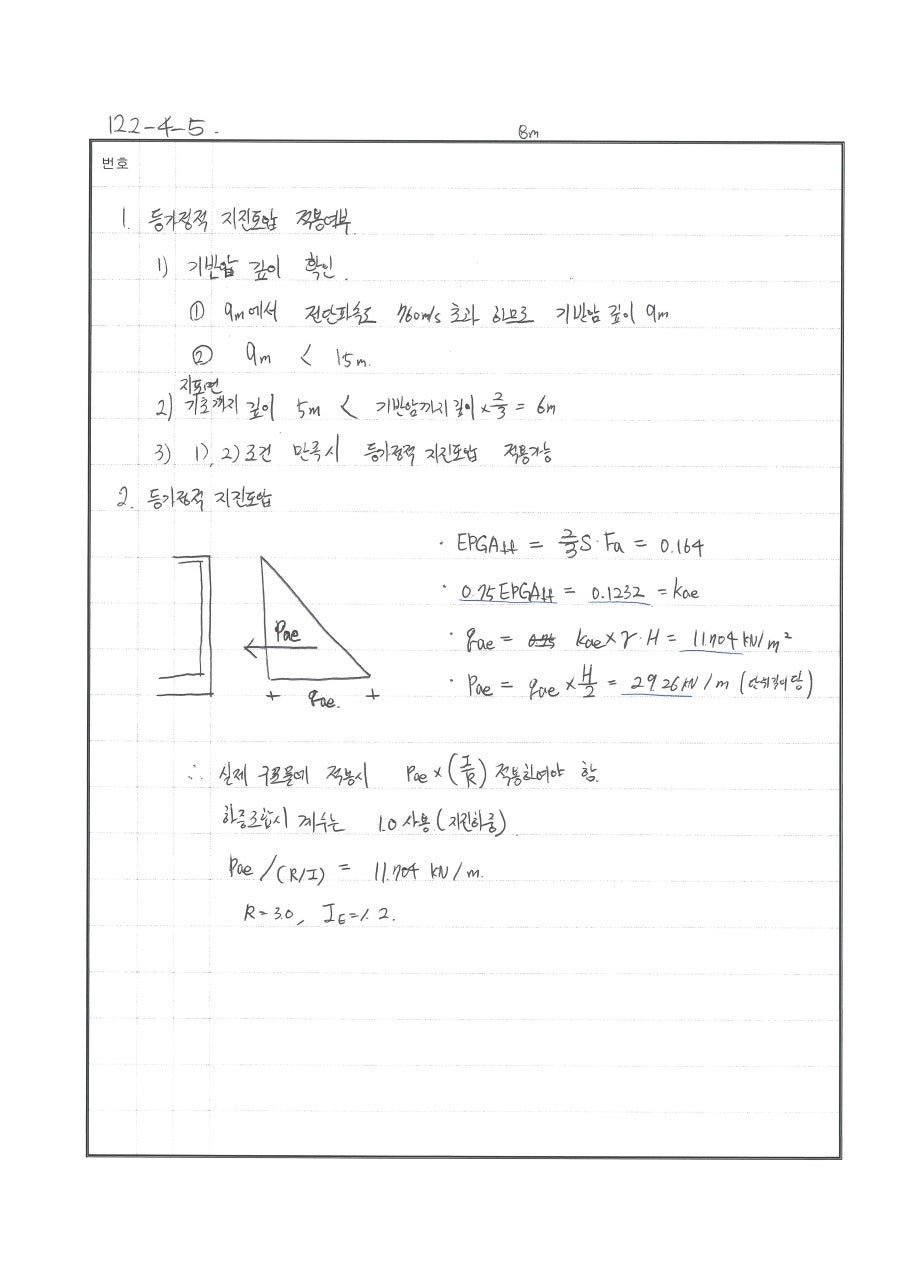 122-4-5.
6m
번호
1. 등가정적 지진토압 적용여부
1) 기반암 깊이 확인.
① 9m에서 전단파속도 760m/s 초과 하므로 기반암 깊이 9m
② 9m < 15m.
지표면
2) 기초까지 깊이 5m < 기반암까지 깊이 × 2/3 = 6m
3) 1), 2) 조건 만족시 등가정적 지진토압 적용가능
2. 등가정적 지진토압
· EPGAH = 2/3 S·Fa = 0.164
· 0.75 EPGAH = 0.1232 = kae
· qae = kae × γ·H = 11.704 kN/m²
· Pae = qae × H/2 = 29.26 kN/m (단위길이당)
Pae
qae.
∴ 실제 구조물에 적용시 Pae × (I/R) 적용하여야 함.
하중조합시 계수는 1.0 사용 (지진하중)
Pae/(R/I) = 11.704 kN/m.
R=3.0, IE=1.2.